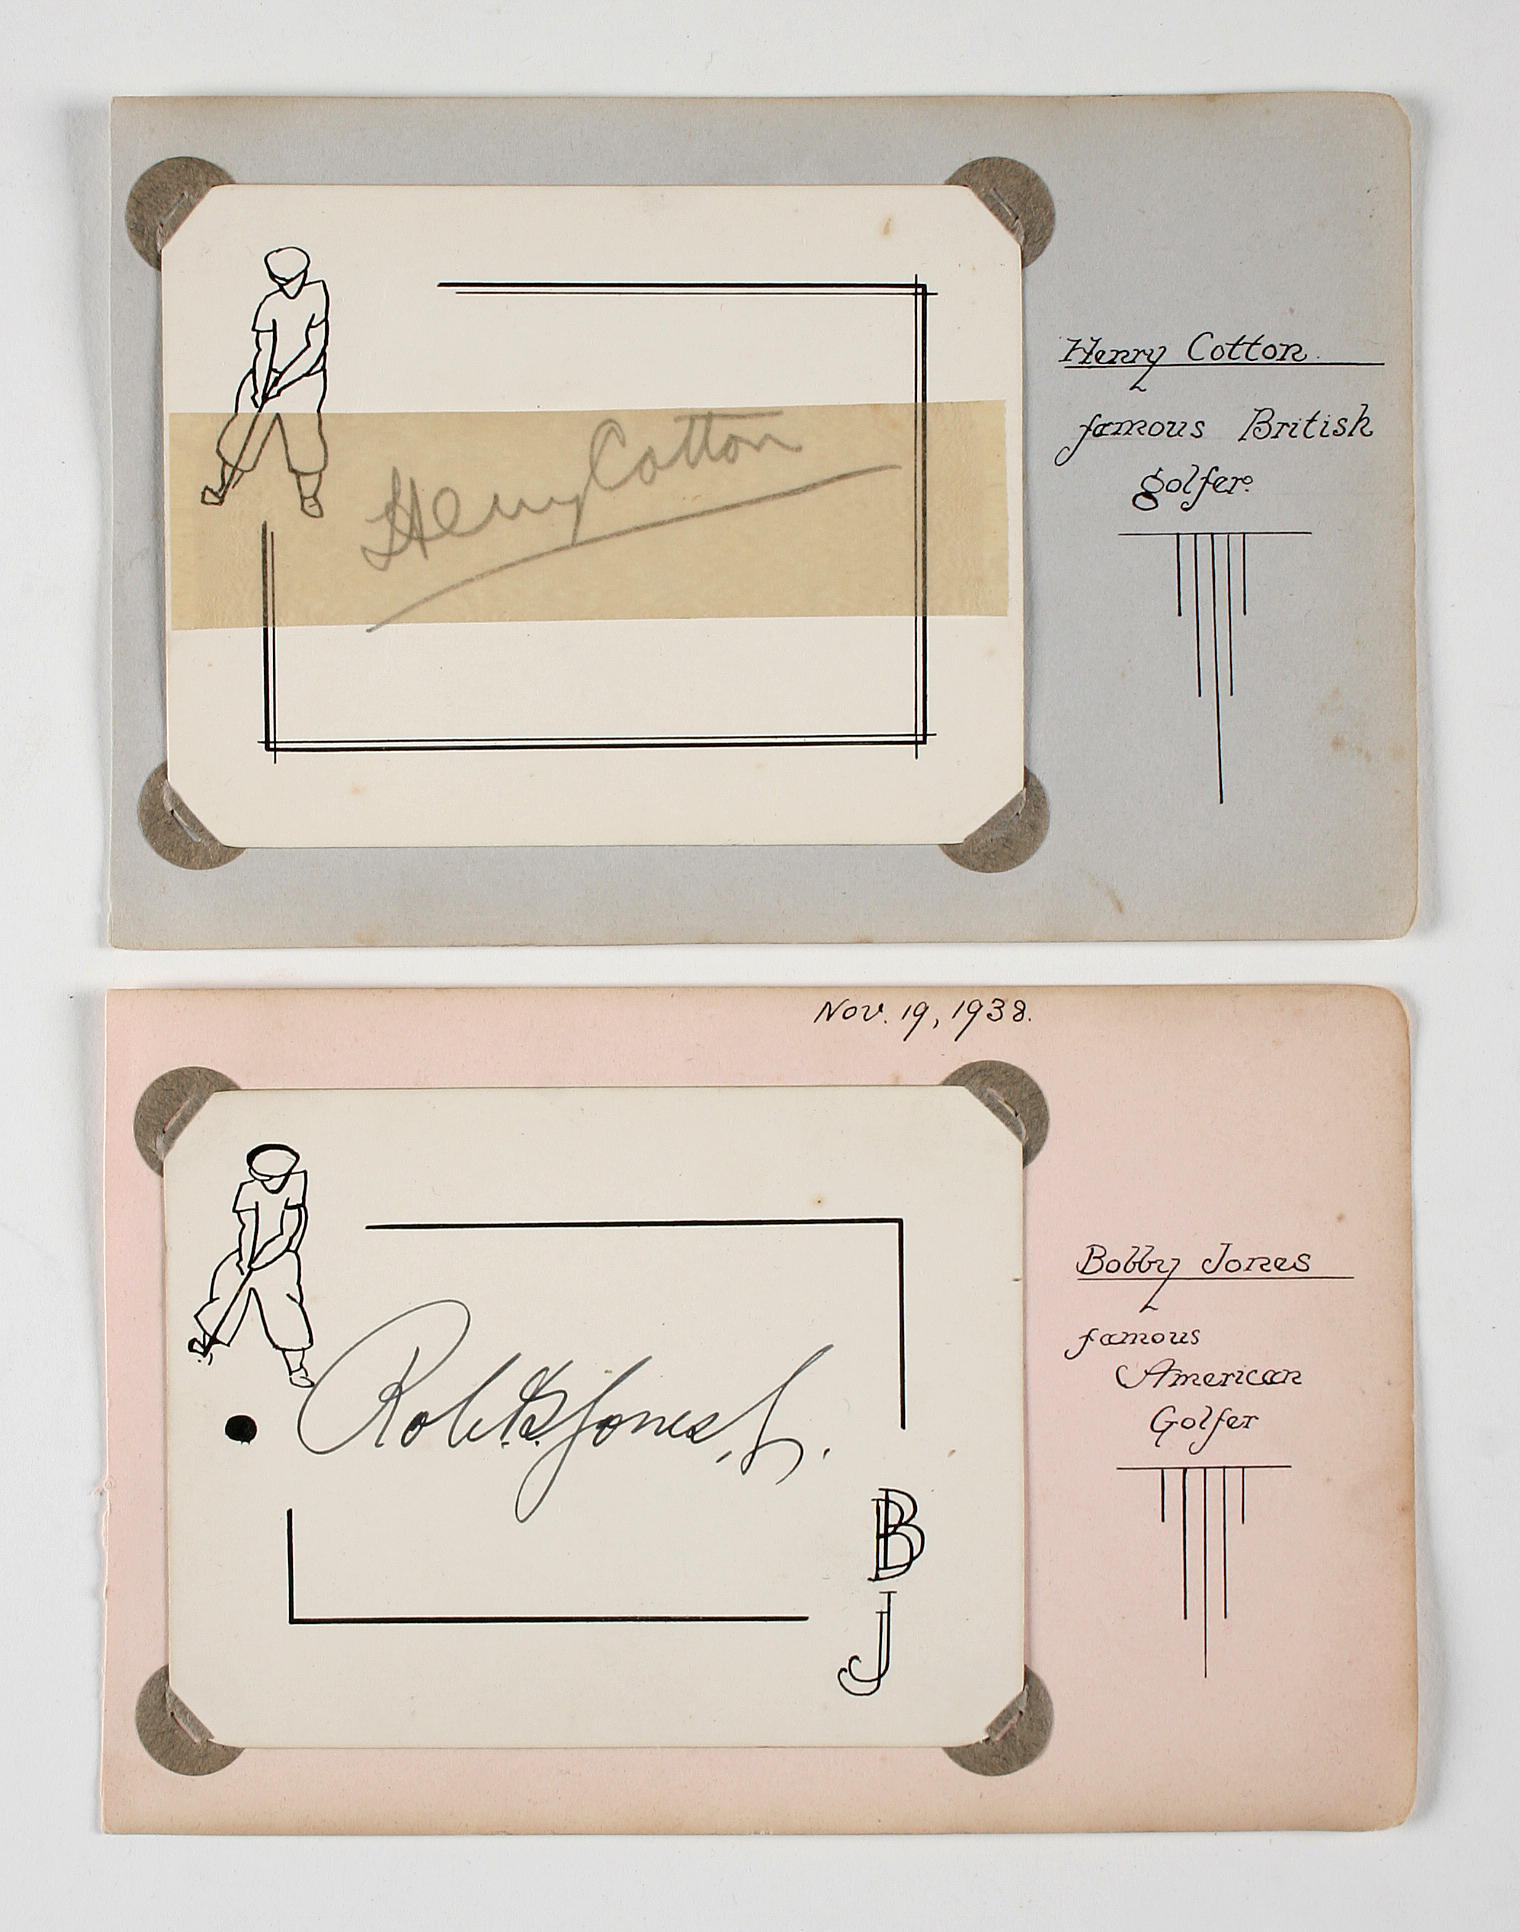 Henry Cotton
Henry Cotton.
famous British
golfer.
Nov. 19, 1938.
Robt. T. Jones, Jr.
B
J
Bobby Jones
famous
American
Golfer